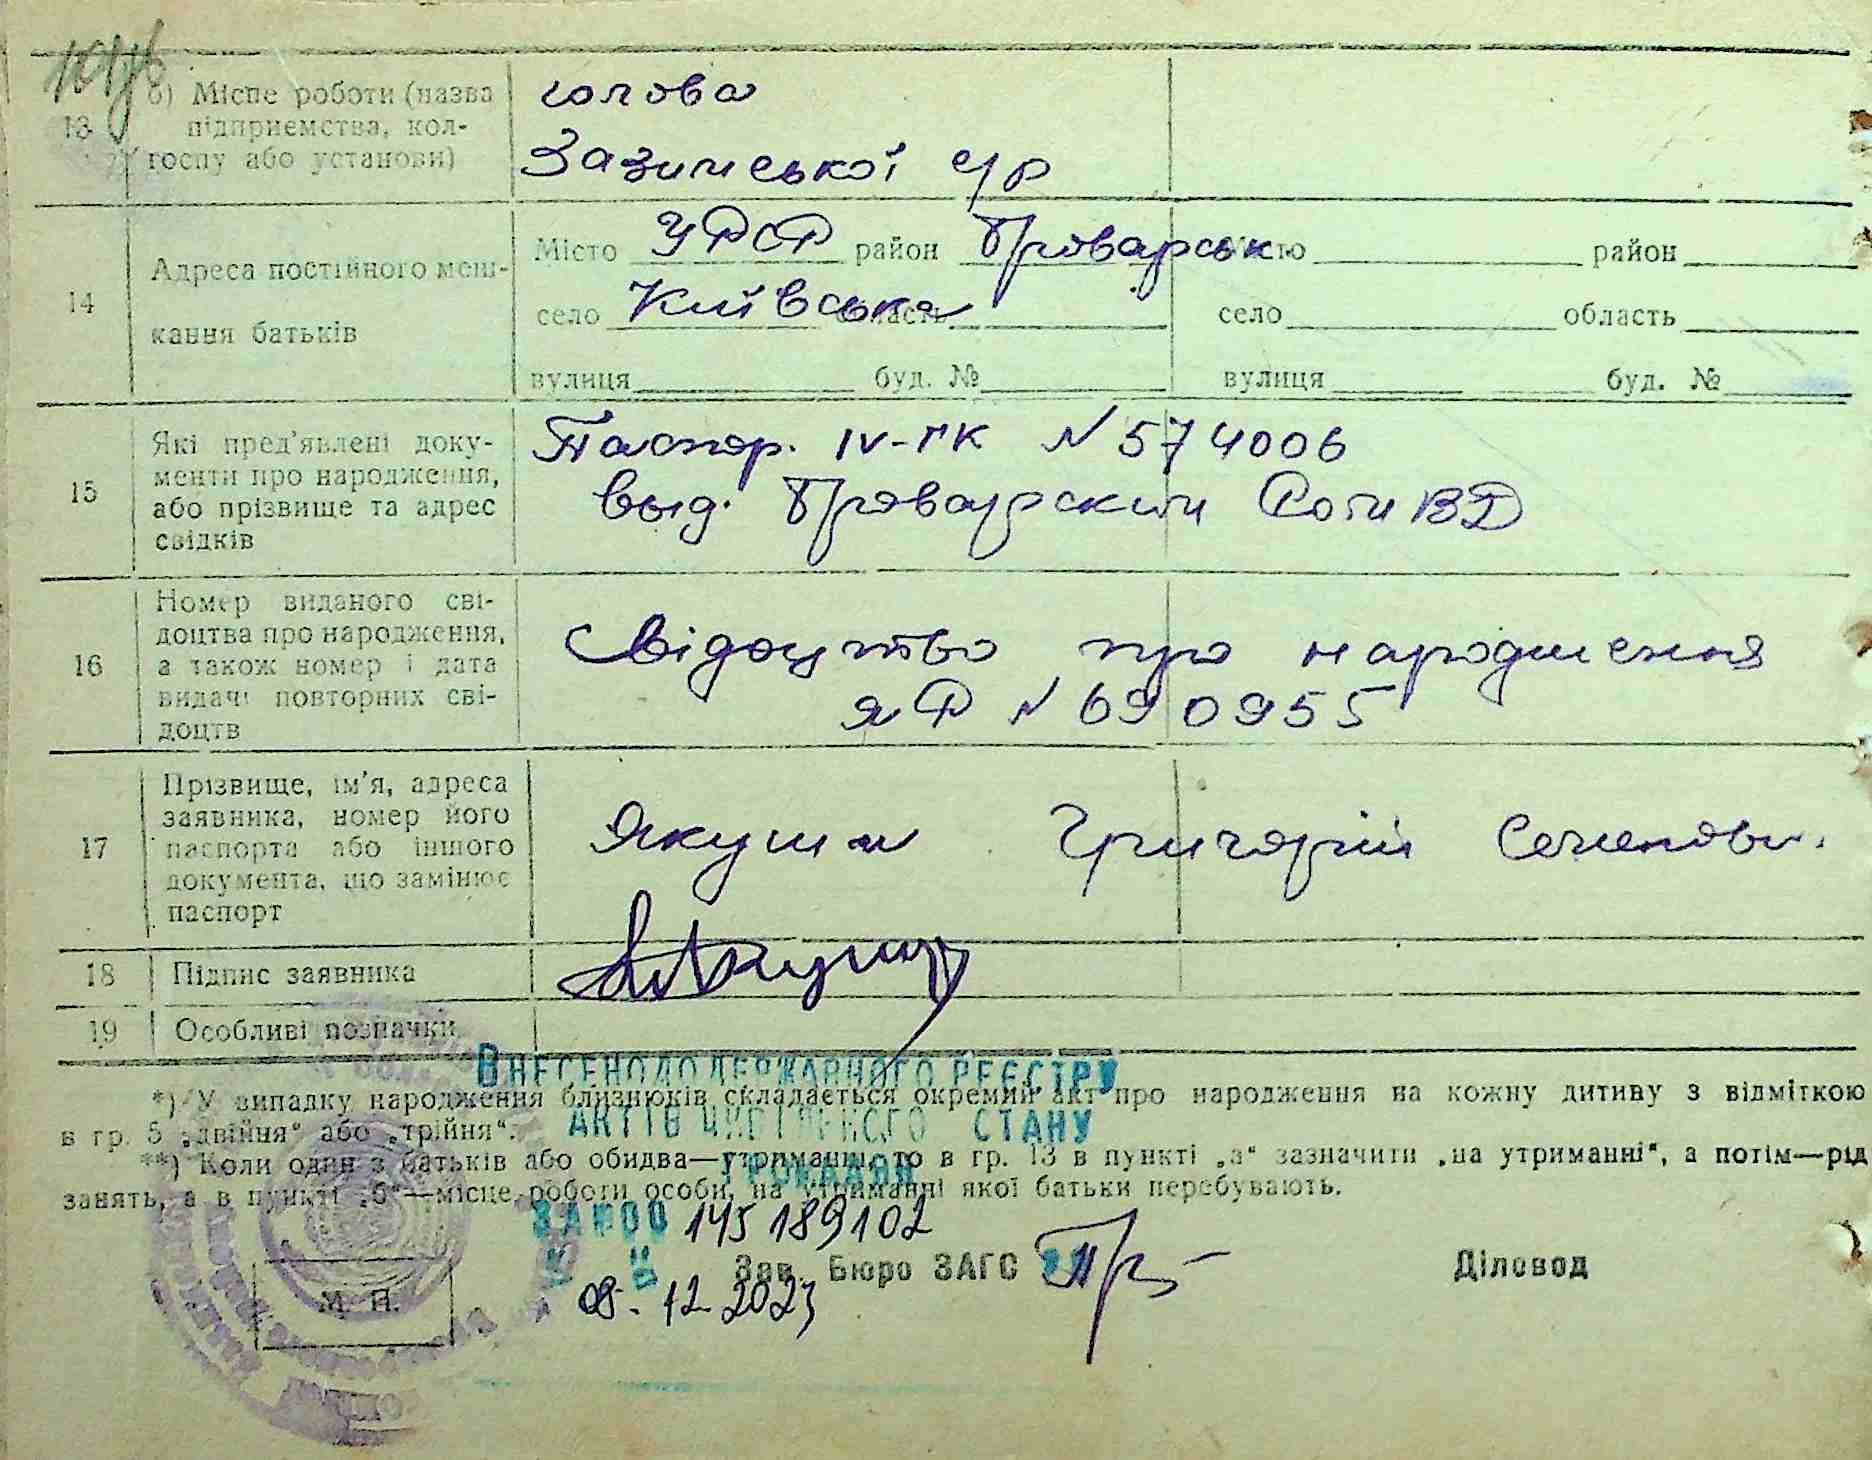 13 б) Місце роботи (назва підприємства, колгоспу або установи)
голова
Зазимської с/р
14 Адреса постійного мешкання батьків
Місто УРСР район Броварськ
село Київська область
вулиця буд. №
Місто район
село область
вулиця буд. №
15 Які пред'явлені документи про народження, або прізвище та адрес свідків
Паспор. IV-ГК N 574006
выд. Броварским РотМВД
16 Номер виданого свідоцтва про народження, а також номер і дата видачі повторних свідоцтв
Свідоцтво про народження
ЯР N 690955
17 Прізвище, ім'я, адреса заявника, номер його паспорта або іншого документа, що замінює паспорт
Якуша Григорій Семенови.
18 Підпис заявника
19 Особливі позначки
ВНЕСЕНО ДО ДЕРЖАВНОГО РЕЄСТРУ
*) У випадку народження близнюків складається окремий акт про народження на кожну дитину з відміткою
в гр. 5 „двійня“ або „трійня“.
АКТІВ ЦИВІЛЬНОГО СТАНУ
ГРОМАДЯН
**) Коли один з батьків або обидва—утриманці, то в гр. 13 в пункті „а“ зазначити „на утриманні“, а потім—рід
занять, а в пункті „б“—місце роботи особи, на утриманні якої батьки перебувають.
ЗА №00 145189102
Зав. Бюро ЗАГС
Діловод
08.12.2023
М. П.